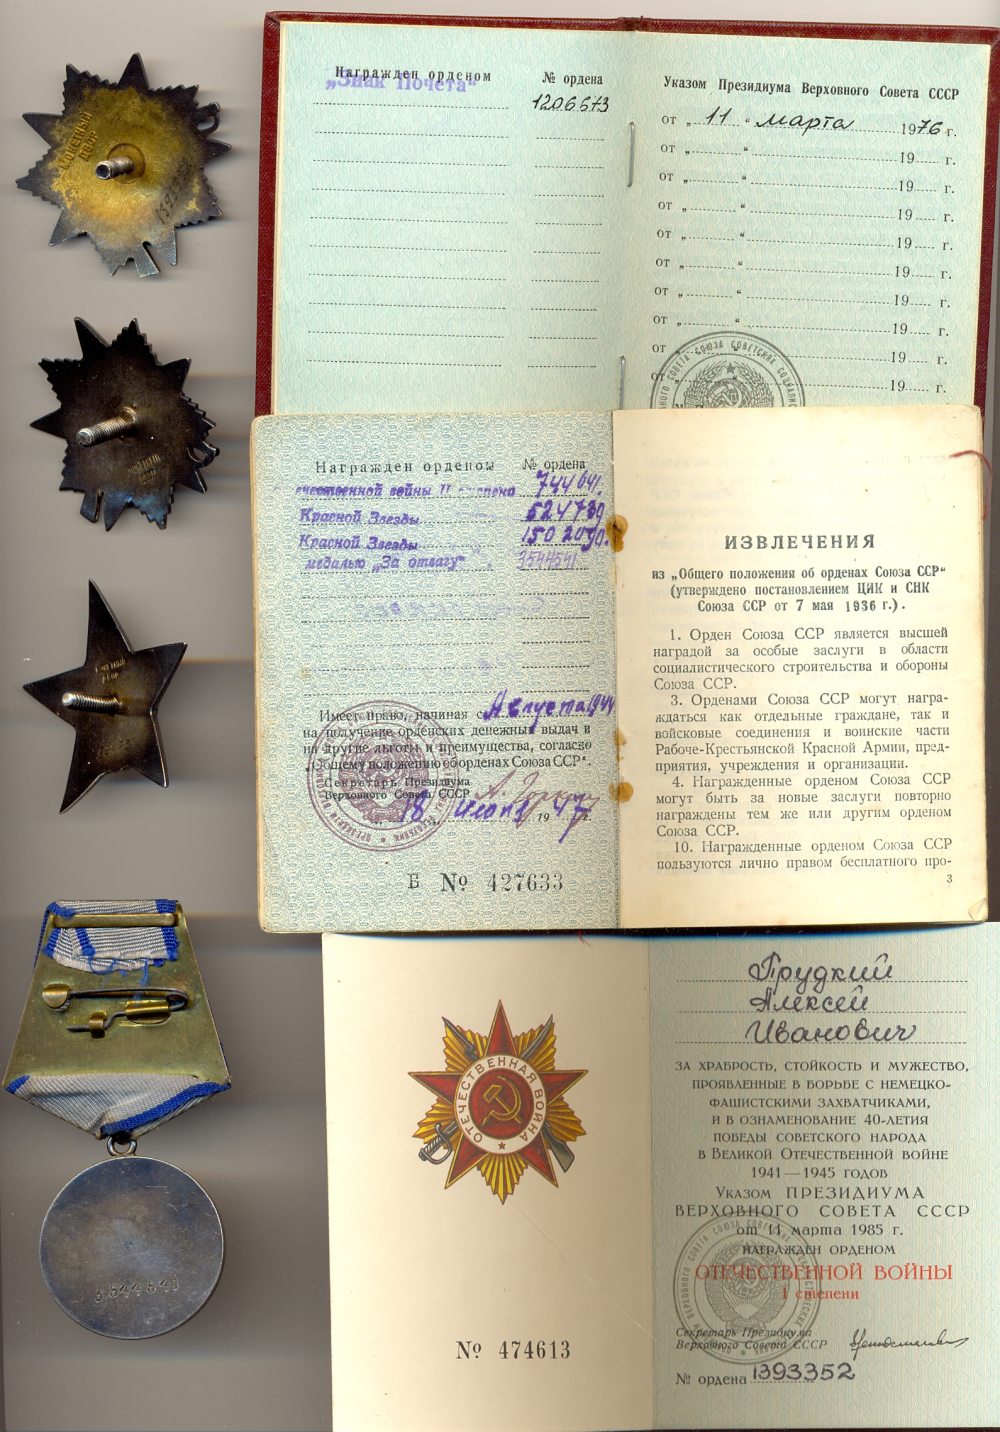 Награжден орденом № ордена
„Знак Почета“ 1206673
Указом Президиума Верховного Совета СССР
от „ 11 “ марта 1976 г.
от „ “ 19 г.
от „ “ 19 г.
от „ “ 19 г.
от „ “ 19 г.
от „ “ 19 г.
от „ “ 19 г.
от „ “ 19 г.
от „ “ 19 г.
от 19 г.
МОНЕТНЫЙ
ДВОР
Награжден орденом № ордена
ечественной войны II степени 744641.
Красной Звезды 524739
Красной Звезды
медалью „За отвагу“ 3544541
Имеет право, начиная с Августа 1944
на получение орденских денежных выдач и
на другие льготы и преимущества, согласно
„Общему положению об орденах Союза ССР“.
Секретарь Президиума
Верховного Совета СССР
18 19 47 г.
Б № 427633
ИЗВЛЕЧЕНИЯ
из „Общего положения об орденах Союза ССР“
(утверждено постановлением ЦИК и СНК
Союза ССР от 7 мая 1936 г.).
1. Орден Союза ССР является высшей
наградой за особые заслуги в области
социалистического строительства и обороны
Союза ССР.
3. Орденами Союза ССР могут награ-
ждаться как отдельные граждане, так и
войсковые соединения и воинские части
Рабоче-Крестьянской Красной Армии, пред-
приятия, учреждения и организации.
4. Награжденные орденом Союза ССР
могут быть за новые заслуги повторно
награждены тем же или другим орденом
Союза ССР.
10. Награжденные орденом Союза ССР
пользуются лично правом бесплатного про-
3
ОТЕЧЕСТВЕННАЯ ВОЙНА
№ 474613
Прудкий
Алексей
Иванович
ЗА ХРАБРОСТЬ, СТОЙКОСТЬ И МУЖЕСТВО,
ПРОЯВЛЕННЫЕ В БОРЬБЕ С НЕМЕЦКО-
ФАШИСТСКИМИ ЗАХВАТЧИКАМИ,
И В ОЗНАМЕНОВАНИЕ 40-ЛЕТИЯ
ПОБЕДЫ СОВЕТСКОГО НАРОДА
В ВЕЛИКОЙ ОТЕЧЕСТВЕННОЙ ВОЙНЕ
1941—1945 ГОДОВ
УКАЗОМ ПРЕЗИДИУМА
ВЕРХОВНОГО СОВЕТА СССР
от 11 марта 1985 г.
НАГРАЖДЕН ОРДЕНОМ
ОТЕЧЕСТВЕННОЙ ВОЙНЫ
I степени
Секретарь Президиума
Верховного Совета СССР
№ ордена 1393352
3544541